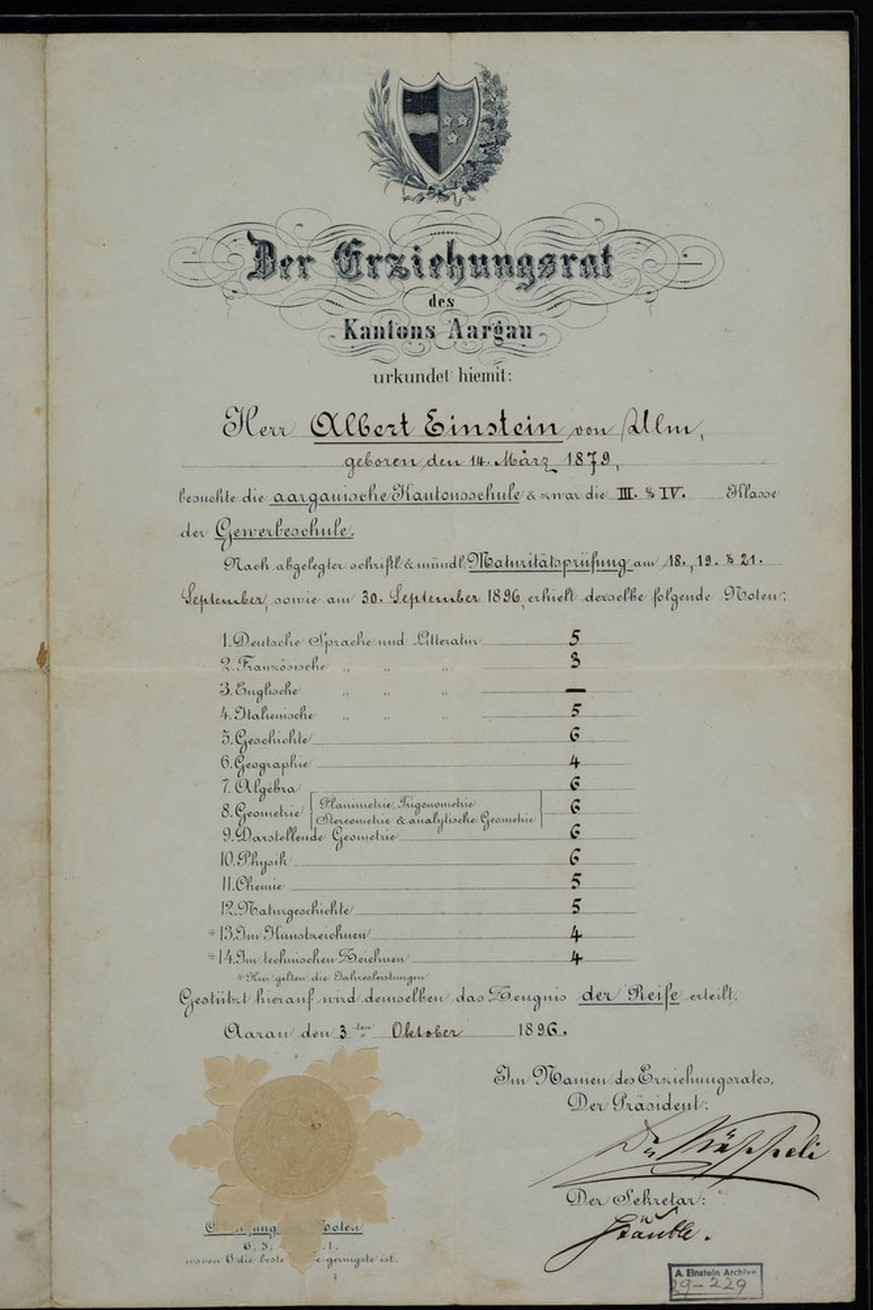 Der Erziehungsrat
des
Kantons Aargau
urkundet hiemit:
Herr Albert Einstein von Ulm,
geboren den 14. März 1879,
besuchte die aargauische Kantonsschule & zwar die III. & IV. Klasse
der Gewerbeschule.
Nach abgelegter schriftl. & mündl. Maturitätsprüfung am 18., 19. & 21.
September, sowie am 30. September 1896, erhielt derselbe folgende Noten:
1. Deutsche Sprache und Litteratur 5
2. Französische " " " 3
3. Englische " " " —
4. Italienische " " " 5
5. Geschichte 6
6. Geographie 4
7. Algebra 6
8. Geometrie Planimetrie, Trigonometrie 6
Stereometrie & analytische Geometrie
9. Darstellende Geometrie 6
10. Physik 6
11. Chemie 5
12. Naturgeschichte 5
* 13. Im Kunstzeichnen 4
* 14. Im technischen Zeichnen 4
* Hier gelten die Jahresleistungen
Gestützt hierauf wird demselben das Zeugnis der Reife erteilt.
Aarau den 3ten Oktober 1896.
Im Namen des Erziehungsrates,
Der Präsident:
Dr. Käppeli
Der Sekretär:
Stäuble.
Noten
6, 5, 1.
wovon 6 die beste geringste ist.
A. Einstein Archive
29-229